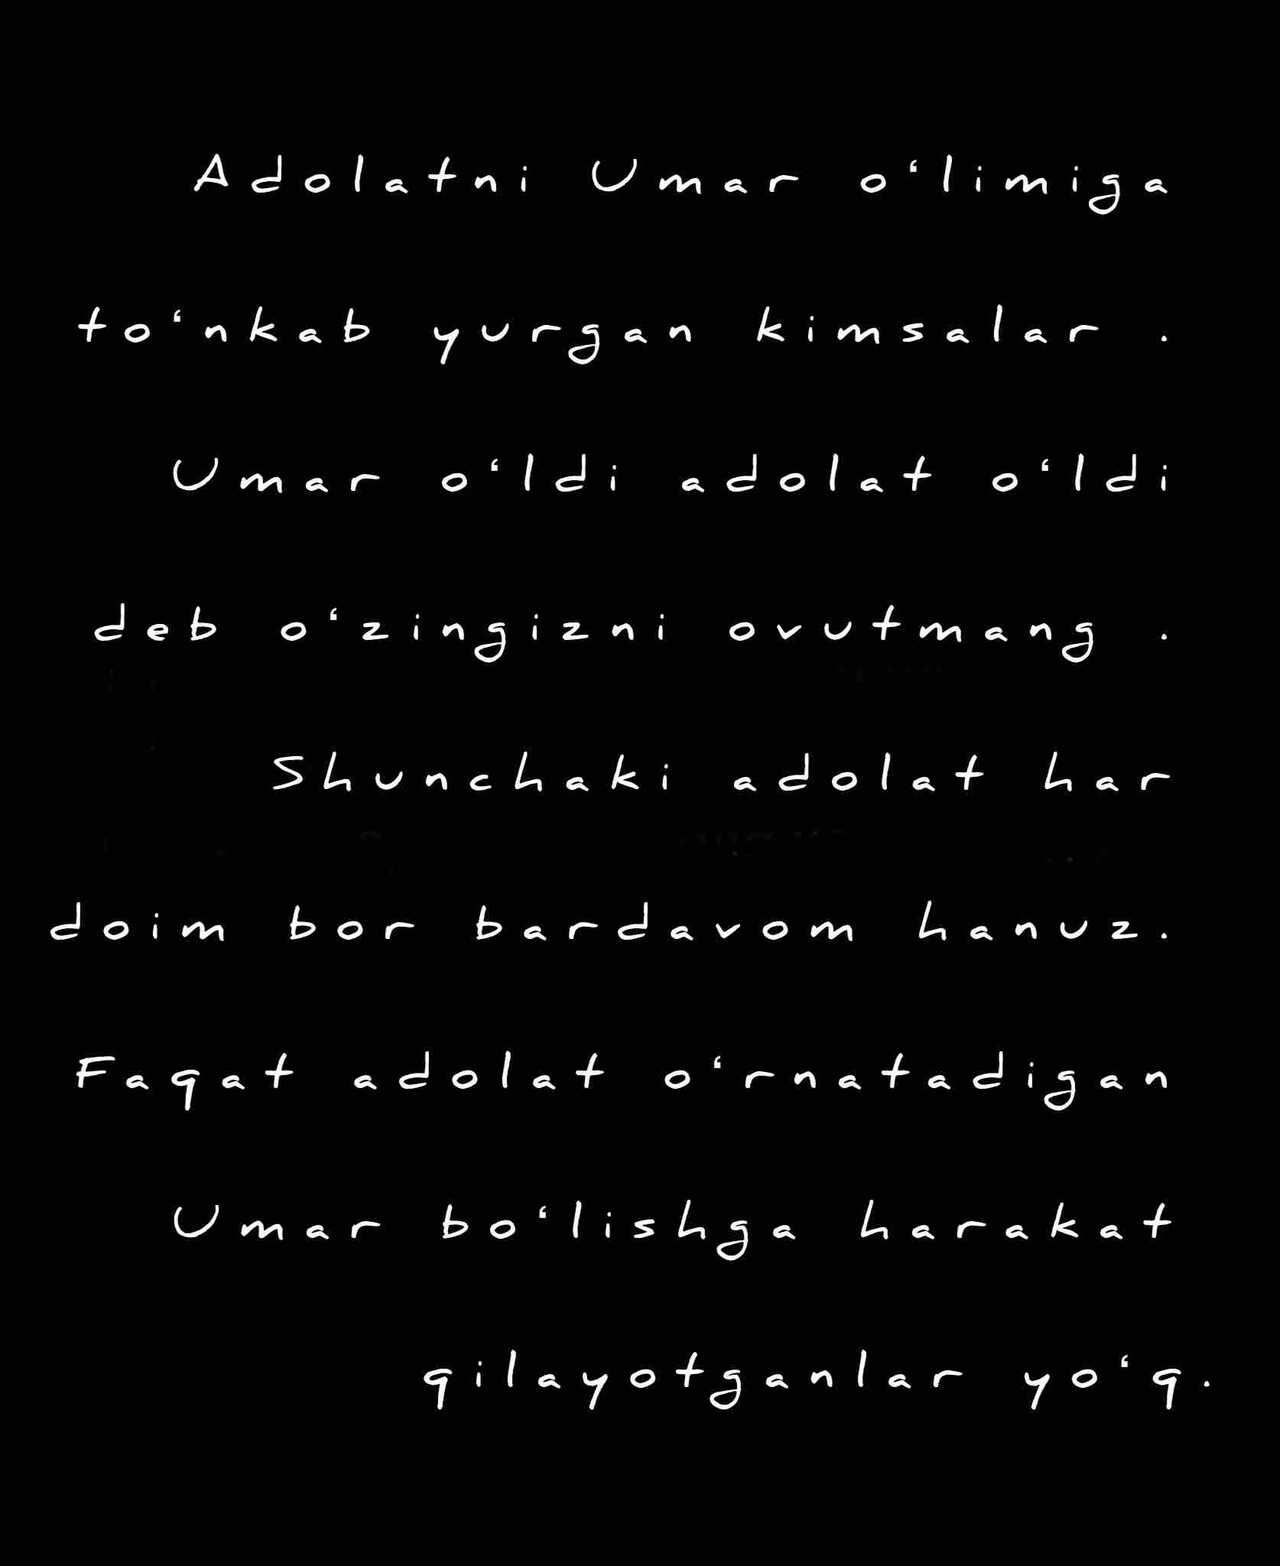 Adolatni Umar o‘limiga
to‘nkab yurgan kimsalar .
Umar o‘ldi adolat o‘ldi
deb o‘zingizni ovutmang .
Shunchaki adolat har
doim bor bardavom hanuz.
Faqat adolat o‘rnatadigan
Umar bo‘lishga harakat
qilayotganlar yo‘q.